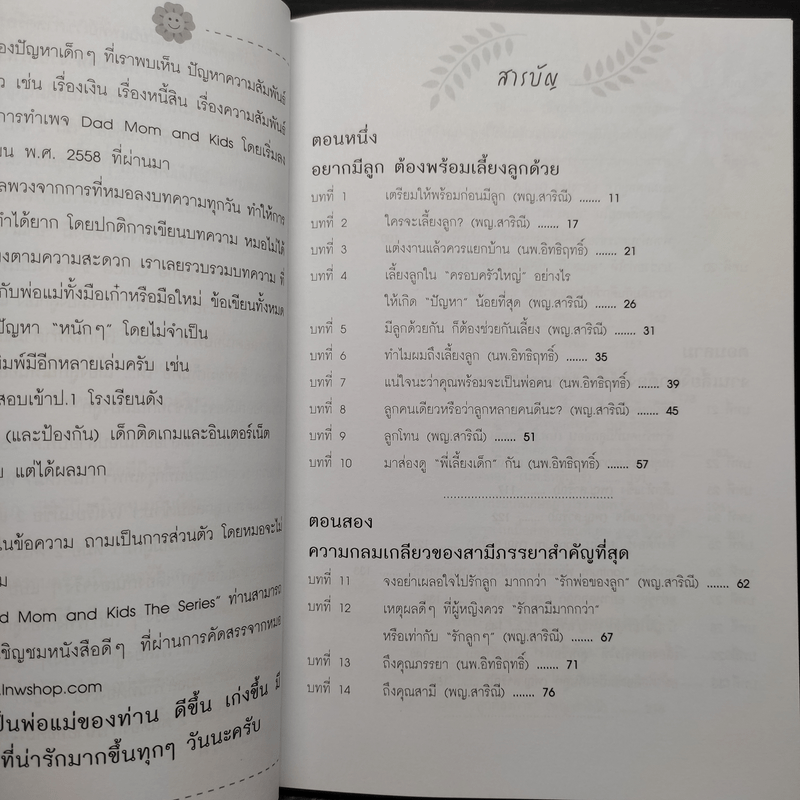 องปัญหาเด็กๆ ที่เราพบเห็น ปัญหาความสัมพันธ์
เช่น เรื่องเงิน เรื่องหนี้สิน เรื่องความสัมพันธ์
การทำเพจ Dad Mom and Kids โดยเริ่มลง
พ.ศ. 2558 ที่ผ่านมา
ลพวงจากการที่หมอลงบทความทุกวัน ทำให้การ
ทำได้ยาก โดยปกติการเขียนบทความ หมอไม่ได้
งตามความสะดวก เราเลยรวบรวมบทความ ที่
กับพ่อแม่ทั้งมือเก๋าหรือมือใหม่ ข้อเขียนทั้งหมด
ปัญหา “หนักๆ” โดยไม่จำเป็น
พิมพ์มีอีกหลายเล่มครับ เช่น
สอบเข้าป.1 โรงเรียนดัง
(และป้องกัน) เด็กติดเกมและอินเตอร์เน็ต
แต่ได้ผลมาก
นข้อความ ถามเป็นการส่วนตัว โดยหมอจะไม่
d Mom and Kids The Series” ท่านสามารถ
เชิญชมหนังสือดีๆ ที่ผ่านการคัดสรรจากหมอ
.lnwshop.com
ป็นพ่อแม่ของท่าน ดีขึ้น เก่งขึ้น มี
ที่น่ารักมากขึ้นทุกๆ วันนะครับ
สารบัญ
ตอนหนึ่ง
อยากมีลูก ต้องพร้อมเลี้ยงลูกด้วย
บทที่ 1 เตรียมให้พร้อมก่อนมีลูก (พญ.สาริณี) ....... 11
บทที่ 2 ใครจะเลี้ยงลูก? (พญ.สาริณี) ....... 17
บทที่ 3 แต่งงานแล้วควรแยกบ้าน (นพ.อิทธิฤทธิ์) ....... 21
บทที่ 4 เลี้ยงลูกใน “ครอบครัวใหญ่” อย่างไร
ให้เกิด “ปัญหา” น้อยที่สุด (พญ.สาริณี) ....... 26
บทที่ 5 มีลูกด้วยกัน ก็ต้องช่วยกันเลี้ยง (พญ.สาริณี) ....... 31
บทที่ 6 ทำไมผมถึงเลี้ยงลูก (นพ.อิทธิฤทธิ์) ....... 35
บทที่ 7 แน่ใจนะว่าคุณพร้อมจะเป็นพ่อคน (นพ.อิทธิฤทธิ์) ....... 39
บทที่ 8 ลูกคนเดียวหรือว่าลูกหลายคนดีนะ? (พญ.สาริณี) ....... 45
บทที่ 9 ลูกโทน (พญ.สาริณี) ....... 51
บทที่ 10 มาส่องดู “พี่เลี้ยงเด็ก” กัน (นพ.อิทธิฤทธิ์) ....... 57
ตอนสอง
ความกลมเกลียวของสามีภรรยาสำคัญที่สุด
บทที่ 11 จงอย่าเผลอใจไปรักลูก มากกว่า “รักพ่อของลูก” (พญ.สาริณี) ....... 62
บทที่ 12 เหตุผลดีๆ ที่ผู้หญิงควร “รักสามีมากกว่า”
หรือเท่ากับ “รักลูกๆ” (พญ.สาริณี) ....... 67
บทที่ 13 ถึงคุณภรรยา (นพ.อิทธิฤทธิ์) ....... 71
บทที่ 14 ถึงคุณสามี (พญ.สาริณี) ....... 76